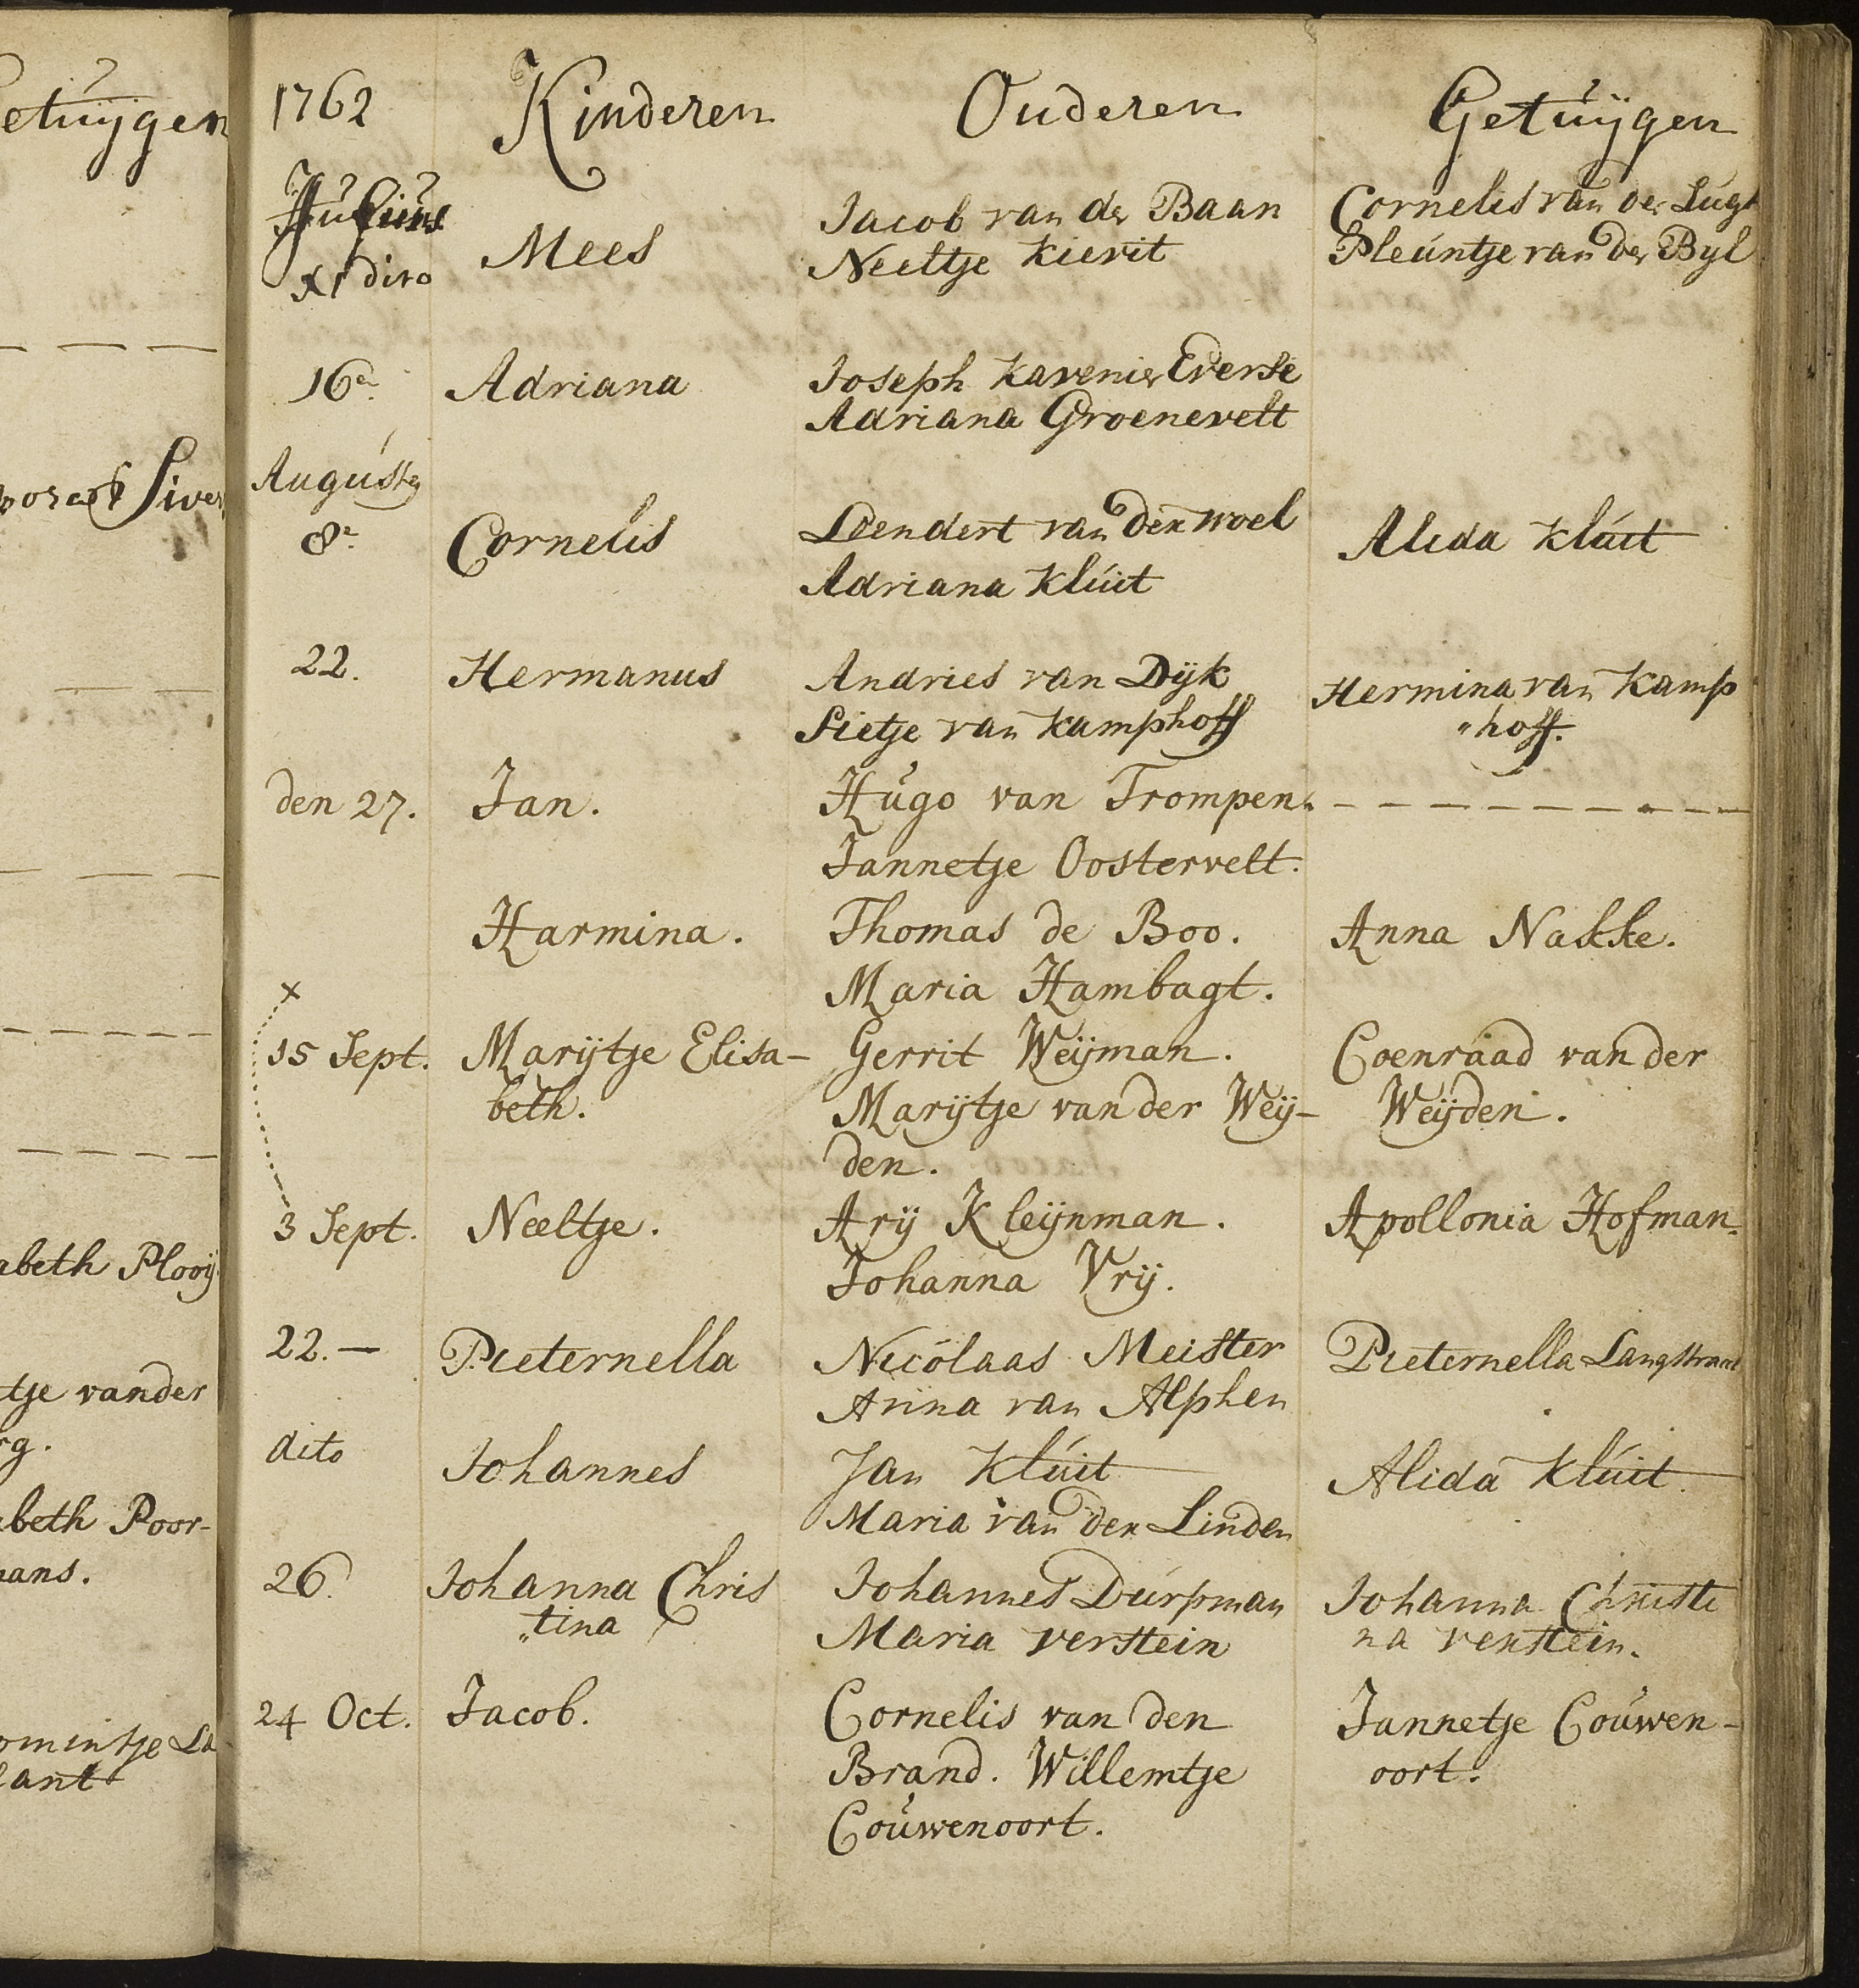 etuÿgen
Siver
abeth Plooÿ
tje vander
rg.
abeth Poor-
ans.
omintje La
lant
1762 Kinderen Ouderen Getuÿgen
Julius
Mees Jacob van der Baan Cornelis van der Lugt
XI dito Neeltje Kievit Pleuntje van der Byl
16e. Adriana Joseph Kavenier Everse
Adriana Groenevelt
Augusty
8e. Cornelis Leendert van der Woel Alida Kluit
Adriana Kluit
22. Hermanus Andries van Dijk Hermina van Kamp
Sietje van Kamphoff "hoff.
den 27. Jan. Hugo van Trompen. – – – – – – – – –
Jannetje Oostervelt.
Harmina. Thomas de Boo. Anna Nakke.
Maria Hambagt.
x
15 Sept. Marijtje Elisa- Gerrit Weijman. Coenraad van der
beth. Marijtje van der Weij- Weijden.
den.
3 Sept. Neeltje. Arij Kleijnman. Apollonia Hofman.
Johanna Vrij.
22. – Pieternella Nicolaas Meister Pieternella Langstraat
Anna van Alphen
dito Johannes Jan Kluit Alida Kluit.
Maria van der Linden
26. Johanna Chris Johannes Durpman Johanna Christi
"tina Maria Verstein na Verstein.
24 Oct. Jacob. Cornelis van den Jannetje Couwen-
Brand. Willemtje oort.
Couwenoort.